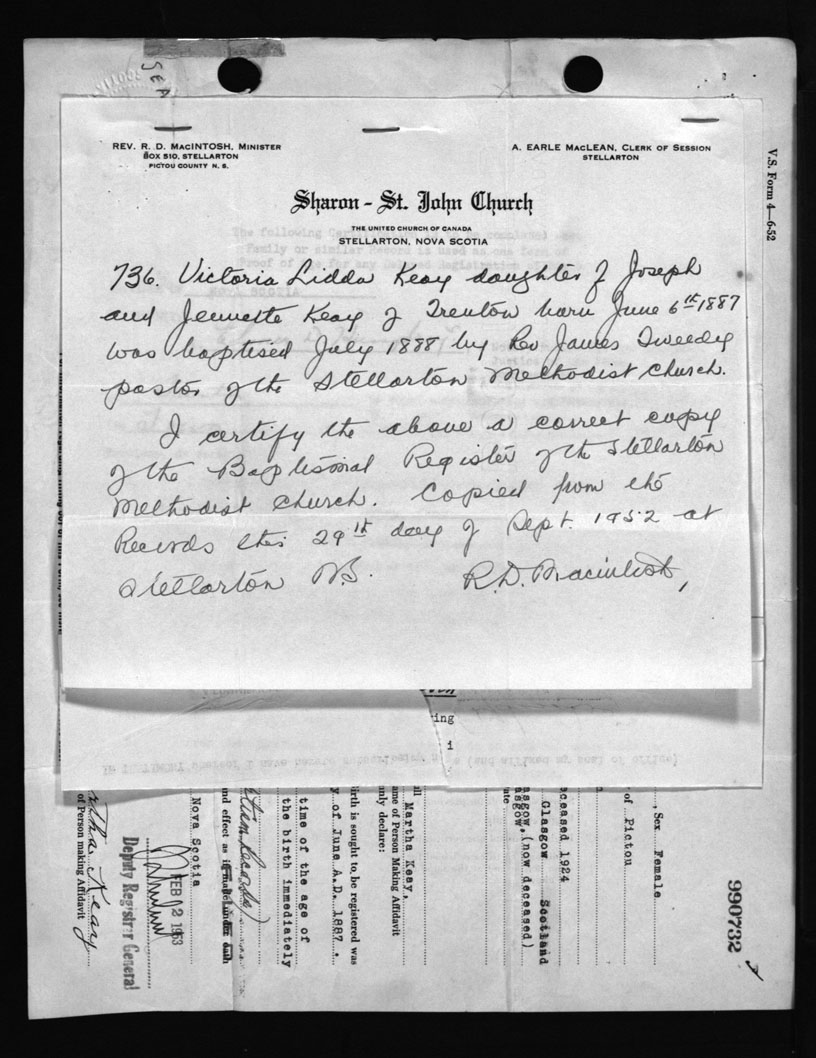 SEA
V.S. Form 4—6-52
REV. R. D. MACINTOSH, MINISTER
BOX 510, STELLARTON
PICTOU COUNTY N. S.
A. EARLE MACLEAN, CLERK OF SESSION
STELLARTON
Sharon - St. John Church
THE UNITED CHURCH OF CANADA
STELLARTON, NOVA SCOTIA
736. Victoria Lidda Keay daughter of Joseph
and Jennette Keay of Trenton born June 6th 1887
was baptised July 1888 by Rev James Tweedy
pastor of the Stellarton Methodist Church.
I certify the above a correct copy
of the Baptismal Register of the Stellarton
Methodist Church. Copied from the
Records this 29th day of Sept. 1952 at
Stellarton N.S. R. D. MacIntosh,
ing
i
990732
, Sex Female
of Pictou
ceased 1924
Glasgow Scotland
asgow, (now deceased)
ate
Martha Keay,
ame of Person Making Affidavit
nly declare:
irth is sought to be registered was
y of June A.D. 1887 .
time of the age of
the birth immediately
tism Records)
nd effect as if made under oath
Nova Scotia
FEB 2 1953
Deputy Registrar General
rtha Keay
of Person making Affidavit